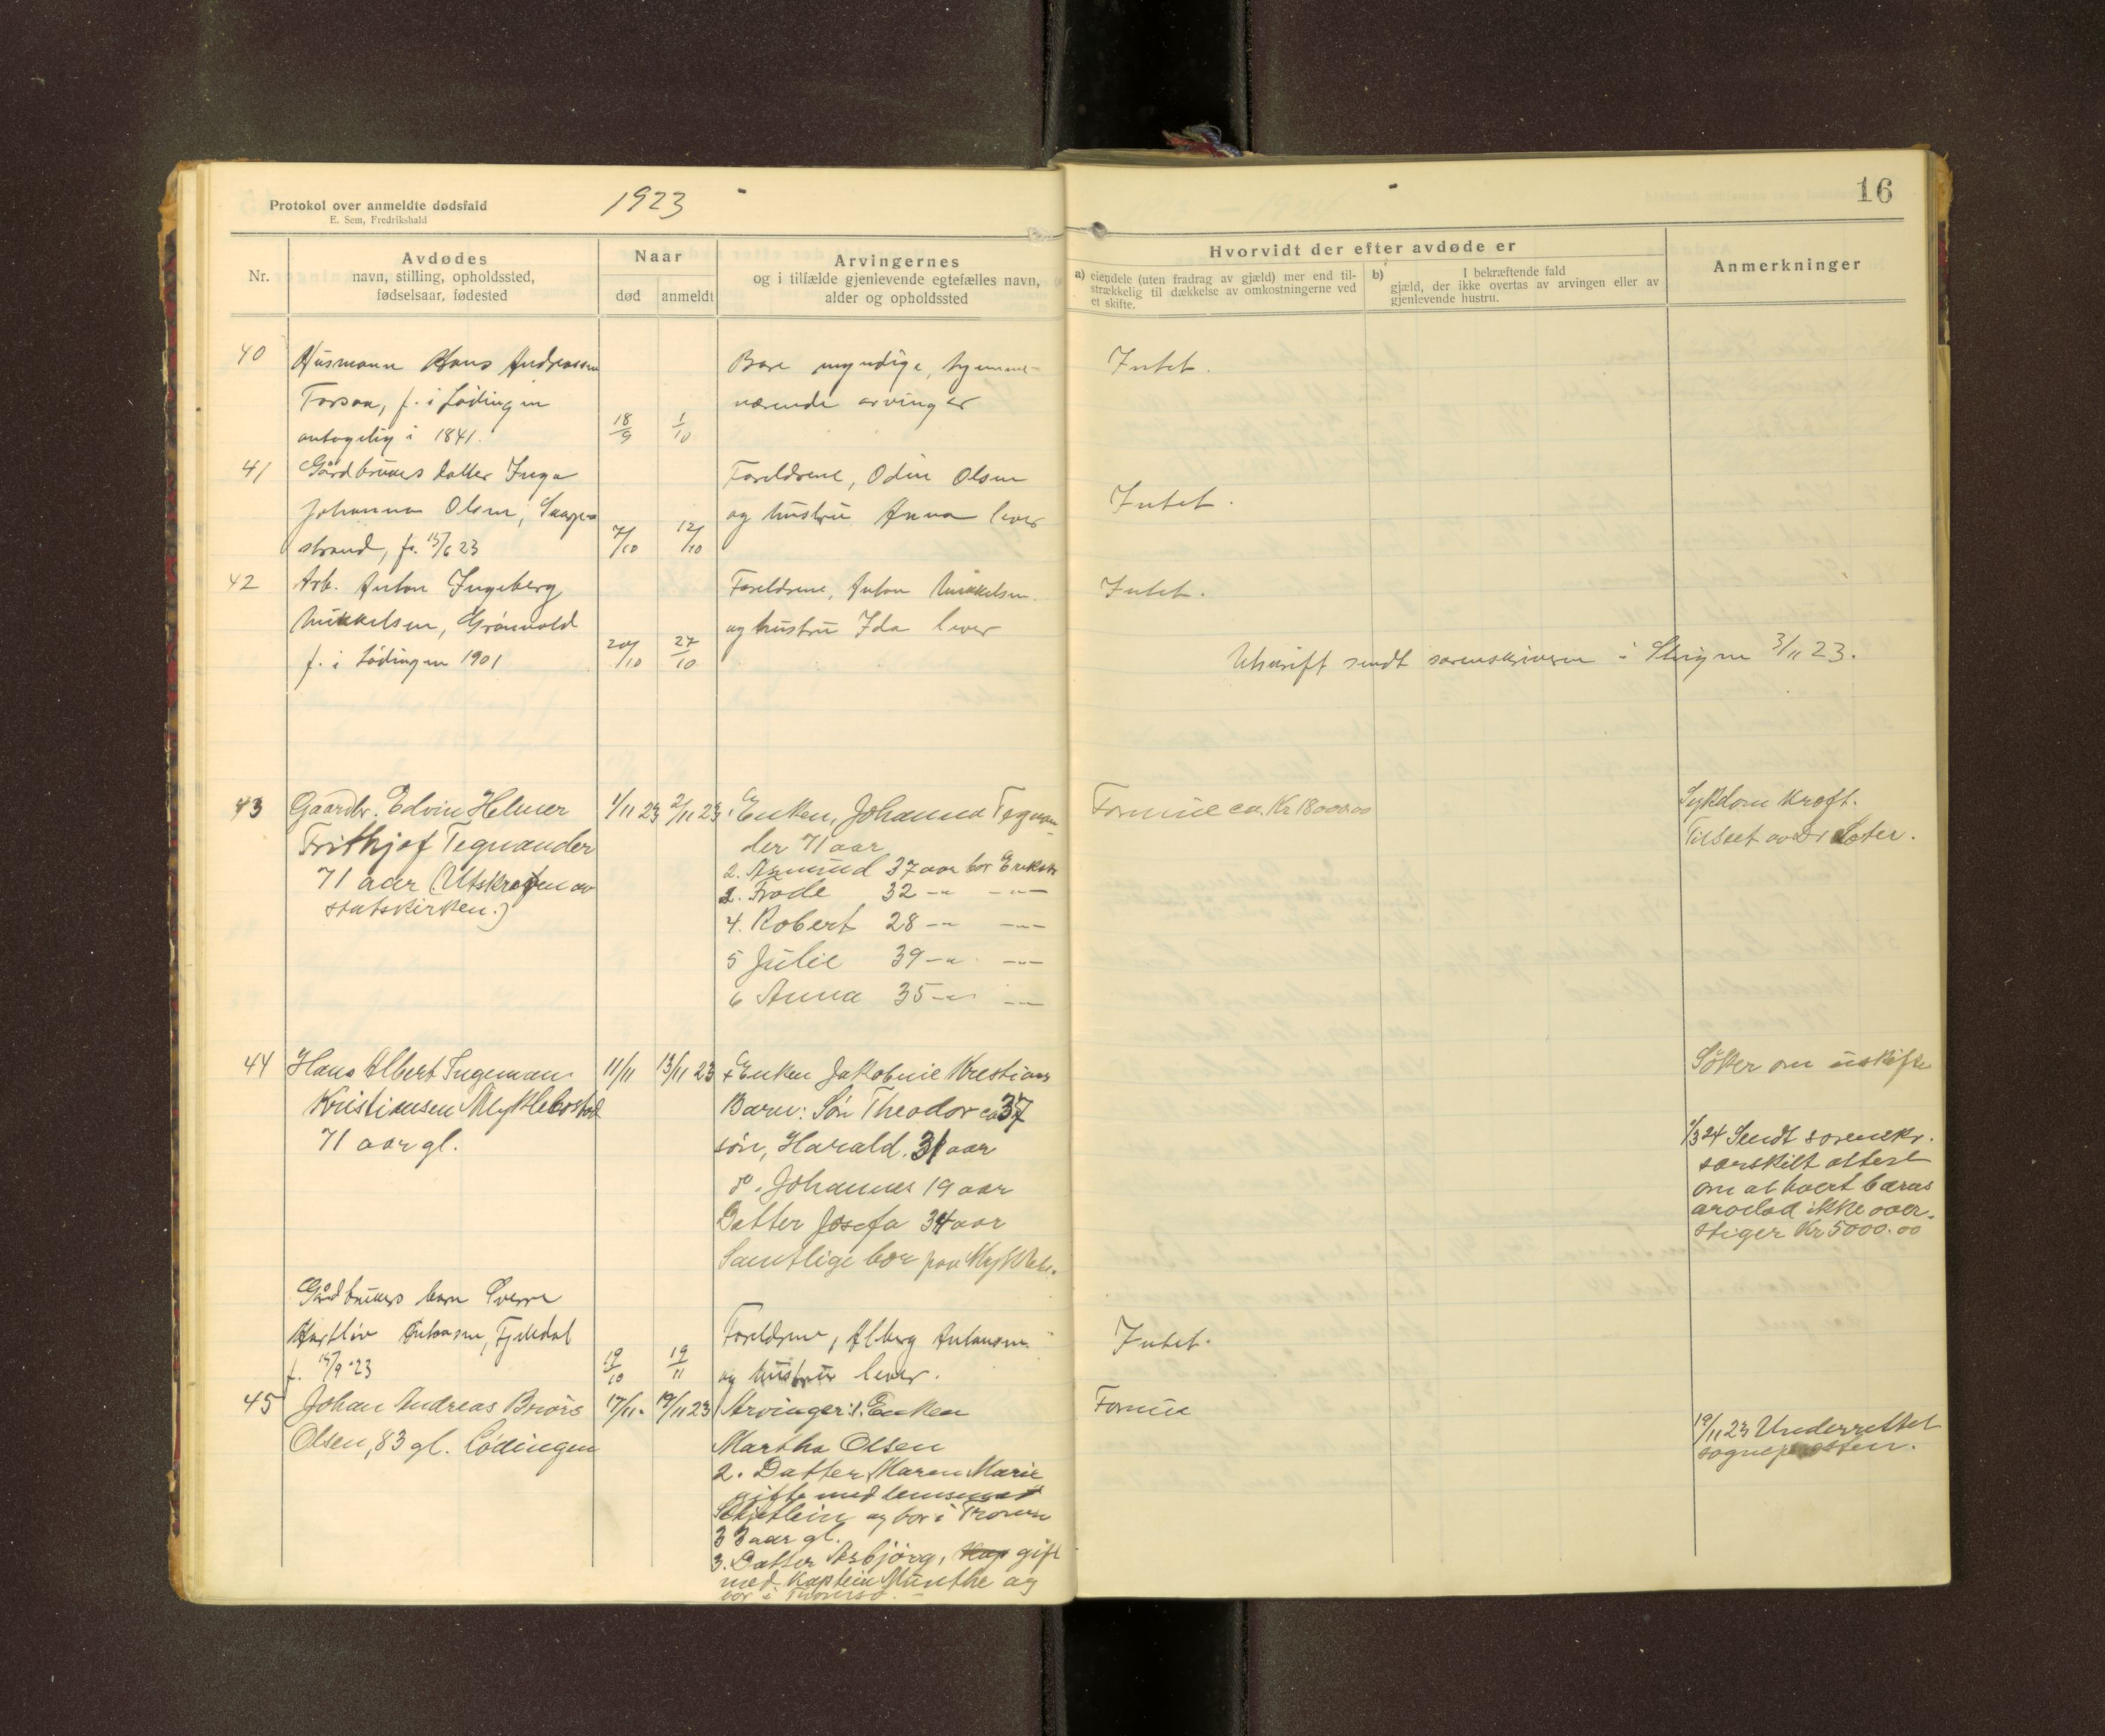 Protokol over anmeldte dødsfald
E. Sem, Fredrikshald
1923
16
Nr.
Avdødes
navn, stilling, opholdssted,
fødselsaar, fødested
Naar
død
anmeldt
Arvingernes
og i tilfælde gjenlevende egtefælles navn,
alder og opholdssted
Hvorvidt der efter avdøde er
a) eiendele (uten fradrag av gjæld) mer end til-
strækkelig til dækkelse av omkostningerne ved
et skifte.
b) I bekræftende fald
gjæld, der ikke overtas av arvingen eller av
gjenlevende hustru.
Anmerkninger
40
Husmann Hans Andreassen
Forsaa, f. i Lødingen
antagelig i 1841.
18/9
1/10
Bare myndige, hjemme-
værende arvinger
Intet.
41
Gårdbrukers datter Inga
Johanna Olsen,
strand, f. 15/6 23
7/10
12/10
Foreldrene, Odin Olsen
og hustru Anna lever
Intet.
42
Arb. Anton Ingeberg
Mikkelsen, Grønvold
f. i Lødingen 1901
20/10
27/10
Foreldrene, Anton Mikkelsen
og hustru Ida lever
Intet.
Utskrift sendt sorenskriveren i Steigen 3/11 23.
43
Gaardbr. Edvin Helmer
Frithjof Tegnander
71 aar (Utskreven av
statskirken.)
1/11 23
2/11 23
1. Enken, Johanna Tegnan-
der 71 aar
2. Asmund 37 aar bor
3. Frode 32 -"- -"-
4. Robert 28 -"- -"-
5 Julie 39 -"- -"-
6 Anna 35 -"- -"-
Formue ca. Kr 18000.00
Sykdom Kræft.
Tilseet av Dr
44
Hans Albert Ingeman
Kristiansen Myklebostad
71 aar gl.
11/11
13/11 23
Enken Jakobine Kristians
Barn: Søn Theodor ca 37
søn, Harald. 31 aar
do. Johannes 19 aar
Datter Josefa 34 aar
Samtlige bor paa Mykleb.
Søker om uskifte
1/3 24 Sendt sorenskr.
særskilt attest
om at hvert barns
arvelod ikke over-
stiger Kr 5000.00
Gårdbrukers barn Sverre
Hartliv Antonsen, Fjelldal
f. 15/9 23
19/10
19/11
Foreldrene, Alberg Antonsen
og hustru lever.
Intet.
45
Johan Andreas Brors
Olsen, 83 gl. Lødingen
17/11.
19/11 23
Arvinger: 1. Enken
Martha Olsen
2. Datter, Maren Marie
gifte med lensmand
Skjetlein og bor i
33 aar gl.
3. Datter Asbjørg, Kap gift
med Kaptein Munthe og
bor i
Formue
19/11 23 Underrettet
sogneprosten.